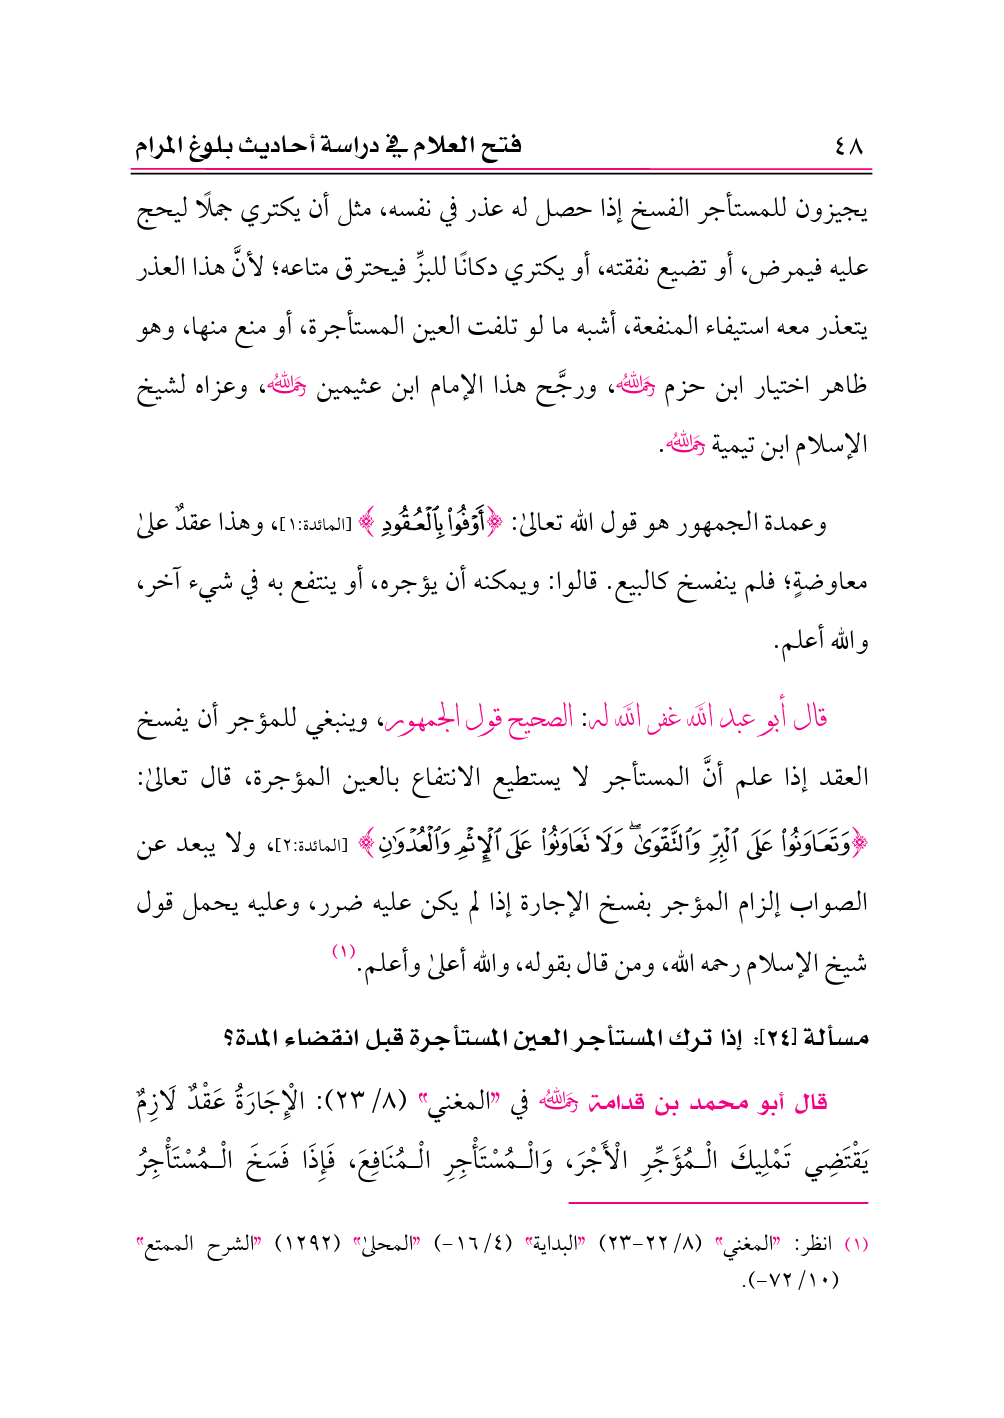 ٤٨ فتح العلام في دراسة أحاديث بلوغ المرام
يجيزون للمستأجر الفسخ إذا حصل له عذر في نفسه، مثل أن يكتري جملًا ليحج
عليه فيمرض، أو تضيع نفقته، أو يكتري دكانًا للبزِّ فيحترق متاعه؛ لأنَّ هذا العذر
يتعذر معه استيفاء المنفعة، أشبه ما لو تلفت العين المستأجرة، أو منع منها، وهو
ظاهر اختيار ابن حزم رحمه الله، ورجَّح هذا الإمام ابن عثيمين رحمه الله، وعزاه لشيخ
الإسلام ابن تيمية رحمه الله.
وعمدة الجمهور هو قول الله تعالىٰ: ﴿أَوْفُوا۟ بِٱلْعُقُودِ﴾ [المائدة:١]، وهذا عقدٌ علىٰ
معاوضةٍ؛ فلم ينفسخ كالبيع. قالوا: ويمكنه أن يؤجره، أو ينتفع به في شيء آخر،
والله أعلم.
قال أبو عبد الله غفر الله له: الصحيح قول الجمهور، وينبغي للمؤجر أن يفسخ
العقد إذا علم أنَّ المستأجر لا يستطيع الانتفاع بالعين المؤجرة، قال تعالىٰ:
﴿وَتَعَاوَنُوا۟ عَلَى ٱلْبِرِّ وَٱلتَّقْوَىٰ ۖ وَلَا تَعَاوَنُوا۟ عَلَى ٱلْإِثْمِ وَٱلْعُدْوَٰنِ﴾ [المائدة:٢]، ولا يبعد عن
الصواب إلزام المؤجر بفسخ الإجارة إذا لم يكن عليه ضرر، وعليه يحمل قول
شيخ الإسلام رحمه الله، ومن قال بقوله، والله أعلىٰ وأعلم.(١)
مسألة [٢٤]: إذا ترك المستأجر العين المستأجرة قبل انقضاء المدة؟
قال أبو محمد بن قدامة رحمه الله في "المغني" (٨/ ٢٣): الْإِجَارَةُ عَقْدٌ لَازِمٌ
يَقْتَضِي تَمْلِيكَ الْـمُؤَجِّرِ الْأَجْرَ، وَالْـمُسْتَأْجِرِ الْـمُنَافِعَ، فَإِذَا فَسَخَ الْـمُسْتَأْجِرُ
(١) انظر: "المغني" (٨/ ٢٢-٢٣) "البداية" (٤/ ١٦-) "المحلىٰ" (١٢٩٢) "الشرح الممتع"
(١٠/ ٧٢-).